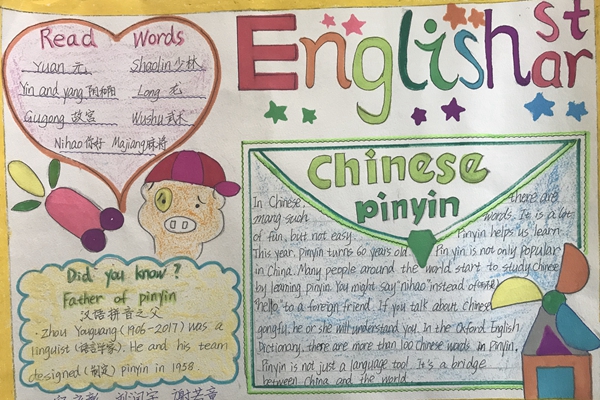 English star
Read Words
Yuan 元 Shaolin 少林
Yin and yang 阴和阳 Long 龙
Gugong 故宫 Wushu 武术
Nihao 你好 Majiang 麻将
Did you know?
Father of pinyin
汉语拼音之父
Zhou Youguang (1906-2017) was a
linguist (语言学家). He and his team
designed (制定) pinyin in 1958.
Chinese
pinyin
In Chinese, there are
many such words. It is a lot
of fun, but not easy. Pinyin helps us learn
This year, pinyin turns 60 years old. Pin yin is not only popular
in China. Many people around the world start to study Chinese
by learning pinyin. You might say "nihao" instead of
"hello" to a foreign friend. If you talk about Chinese
gongfu, he or she will understand you. In the Oxford English
Dictionary, there are more than 100 Chinese words in Pinyin.
Pinyin is not just a language tool. It's a bridge
between China and the world.